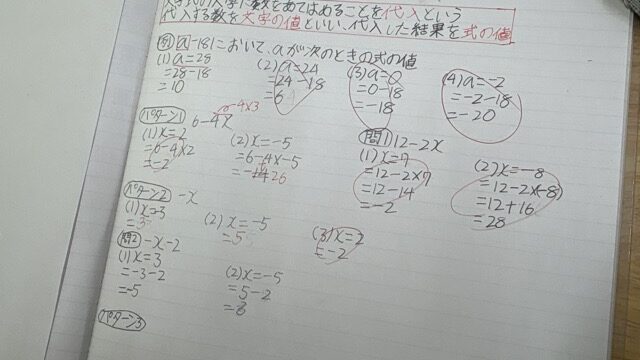 文字式の文字に数をあてはめることを代入という
代入する数を文字の値といい、代入した結果を式の値
例 a-18において、aが次のときの式の値
(1) a=28
=28-18
=10
(2) a=24
=24-18
=6
(3) a=0
=0-18
=-18
(4) a=-2
=-2-18
=-20
パターン1 6-4x
6-4×3
(1) x=2
=6-4×2
=-2
(2) x=-5
=6-4×-5
=26
問1 12-2x
(1) x=7
=12-2×7
=12-14
=-2
(2) x=-8
=12-2×(-8)
=12+16
=28
パターン2 -x
(1) x=3
=3
(2) x=-5
=5
(3) x=2
=-2
問2 -x-2
(1) x=3
=-3-2
=-5
(2) x=-5
=5-2
=3
パターン3